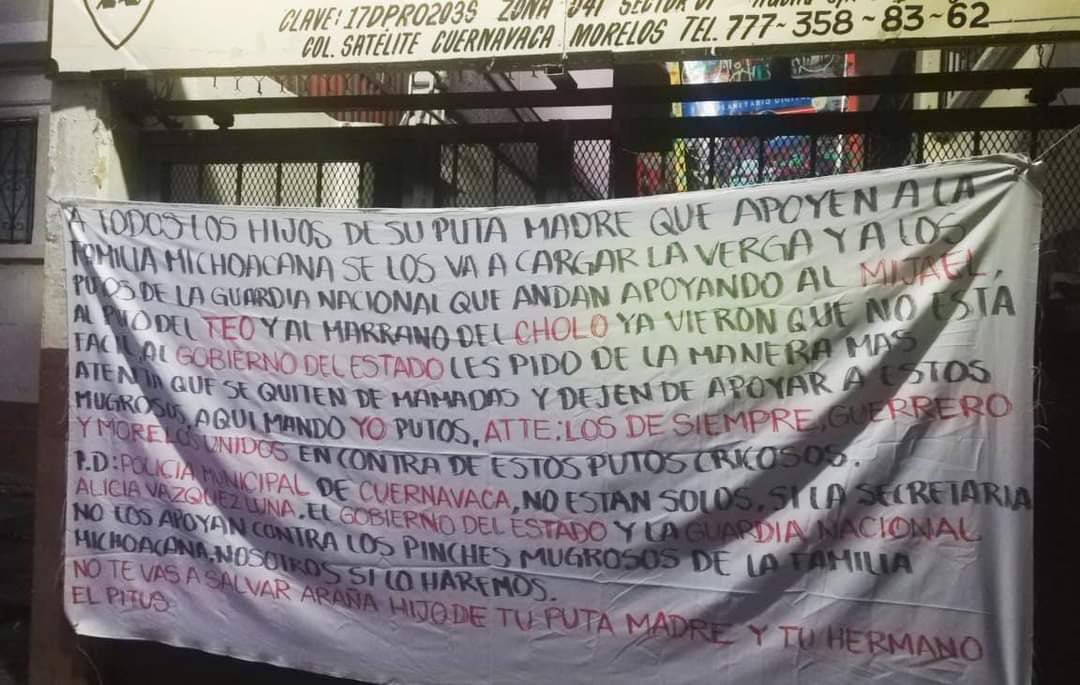 CLAVE: 17DPR0203S ZONA 041 SECTOR 07
COL. SATÉLITE CUERNAVACA MORELOS TEL. 777~358~83~62
A TODOS LOS HIJOS DE SU PUTA MADRE QUE APOYEN A LA
FAMILIA MICHOACANA SE LOS VA A CARGAR LA VERGA Y A LOS
PUTOS DE LA GUARDIA NACIONAL QUE ANDAN APOYANDO AL MIJAEL,
AL PUTO DEL TEO Y AL MARRANO DEL CHOLO YA VIERON QUE NO ESTA
FACIL, AL GOBIERNO DEL ESTADO LES PIDO DE LA MANERA MAS
ATENTA QUE SE QUITEN DE MAMADAS Y DEJEN DE APOYAR A ESTOS
MUGROSOS, AQUI MANDO YO PUTOS, ATTE: LOS DE SIEMPRE, GUERRERO
Y MORELOS UNIDOS EN CONTRA DE ESTOS PUTOS CRICOSOS.
P.D: POLICIA MUNICIPAL DE CUERNAVACA, NO ESTAN SOLOS, SI LA SECRETARIA
ALICIA VAZQUEZ LUNA, EL GOBIERNO DEL ESTADO Y LA GUARDIA NACIONAL
NO LOS APOYAN CONTRA LOS PINCHES MUGROSOS DE LA FAMILIA
MICHOACANA, NOSOTROS SI LO HAREMOS.
NO TE VAS A SALVAR ARAÑA HIJO DE TU PUTA MADRE Y TU HERMANO
EL PITUS